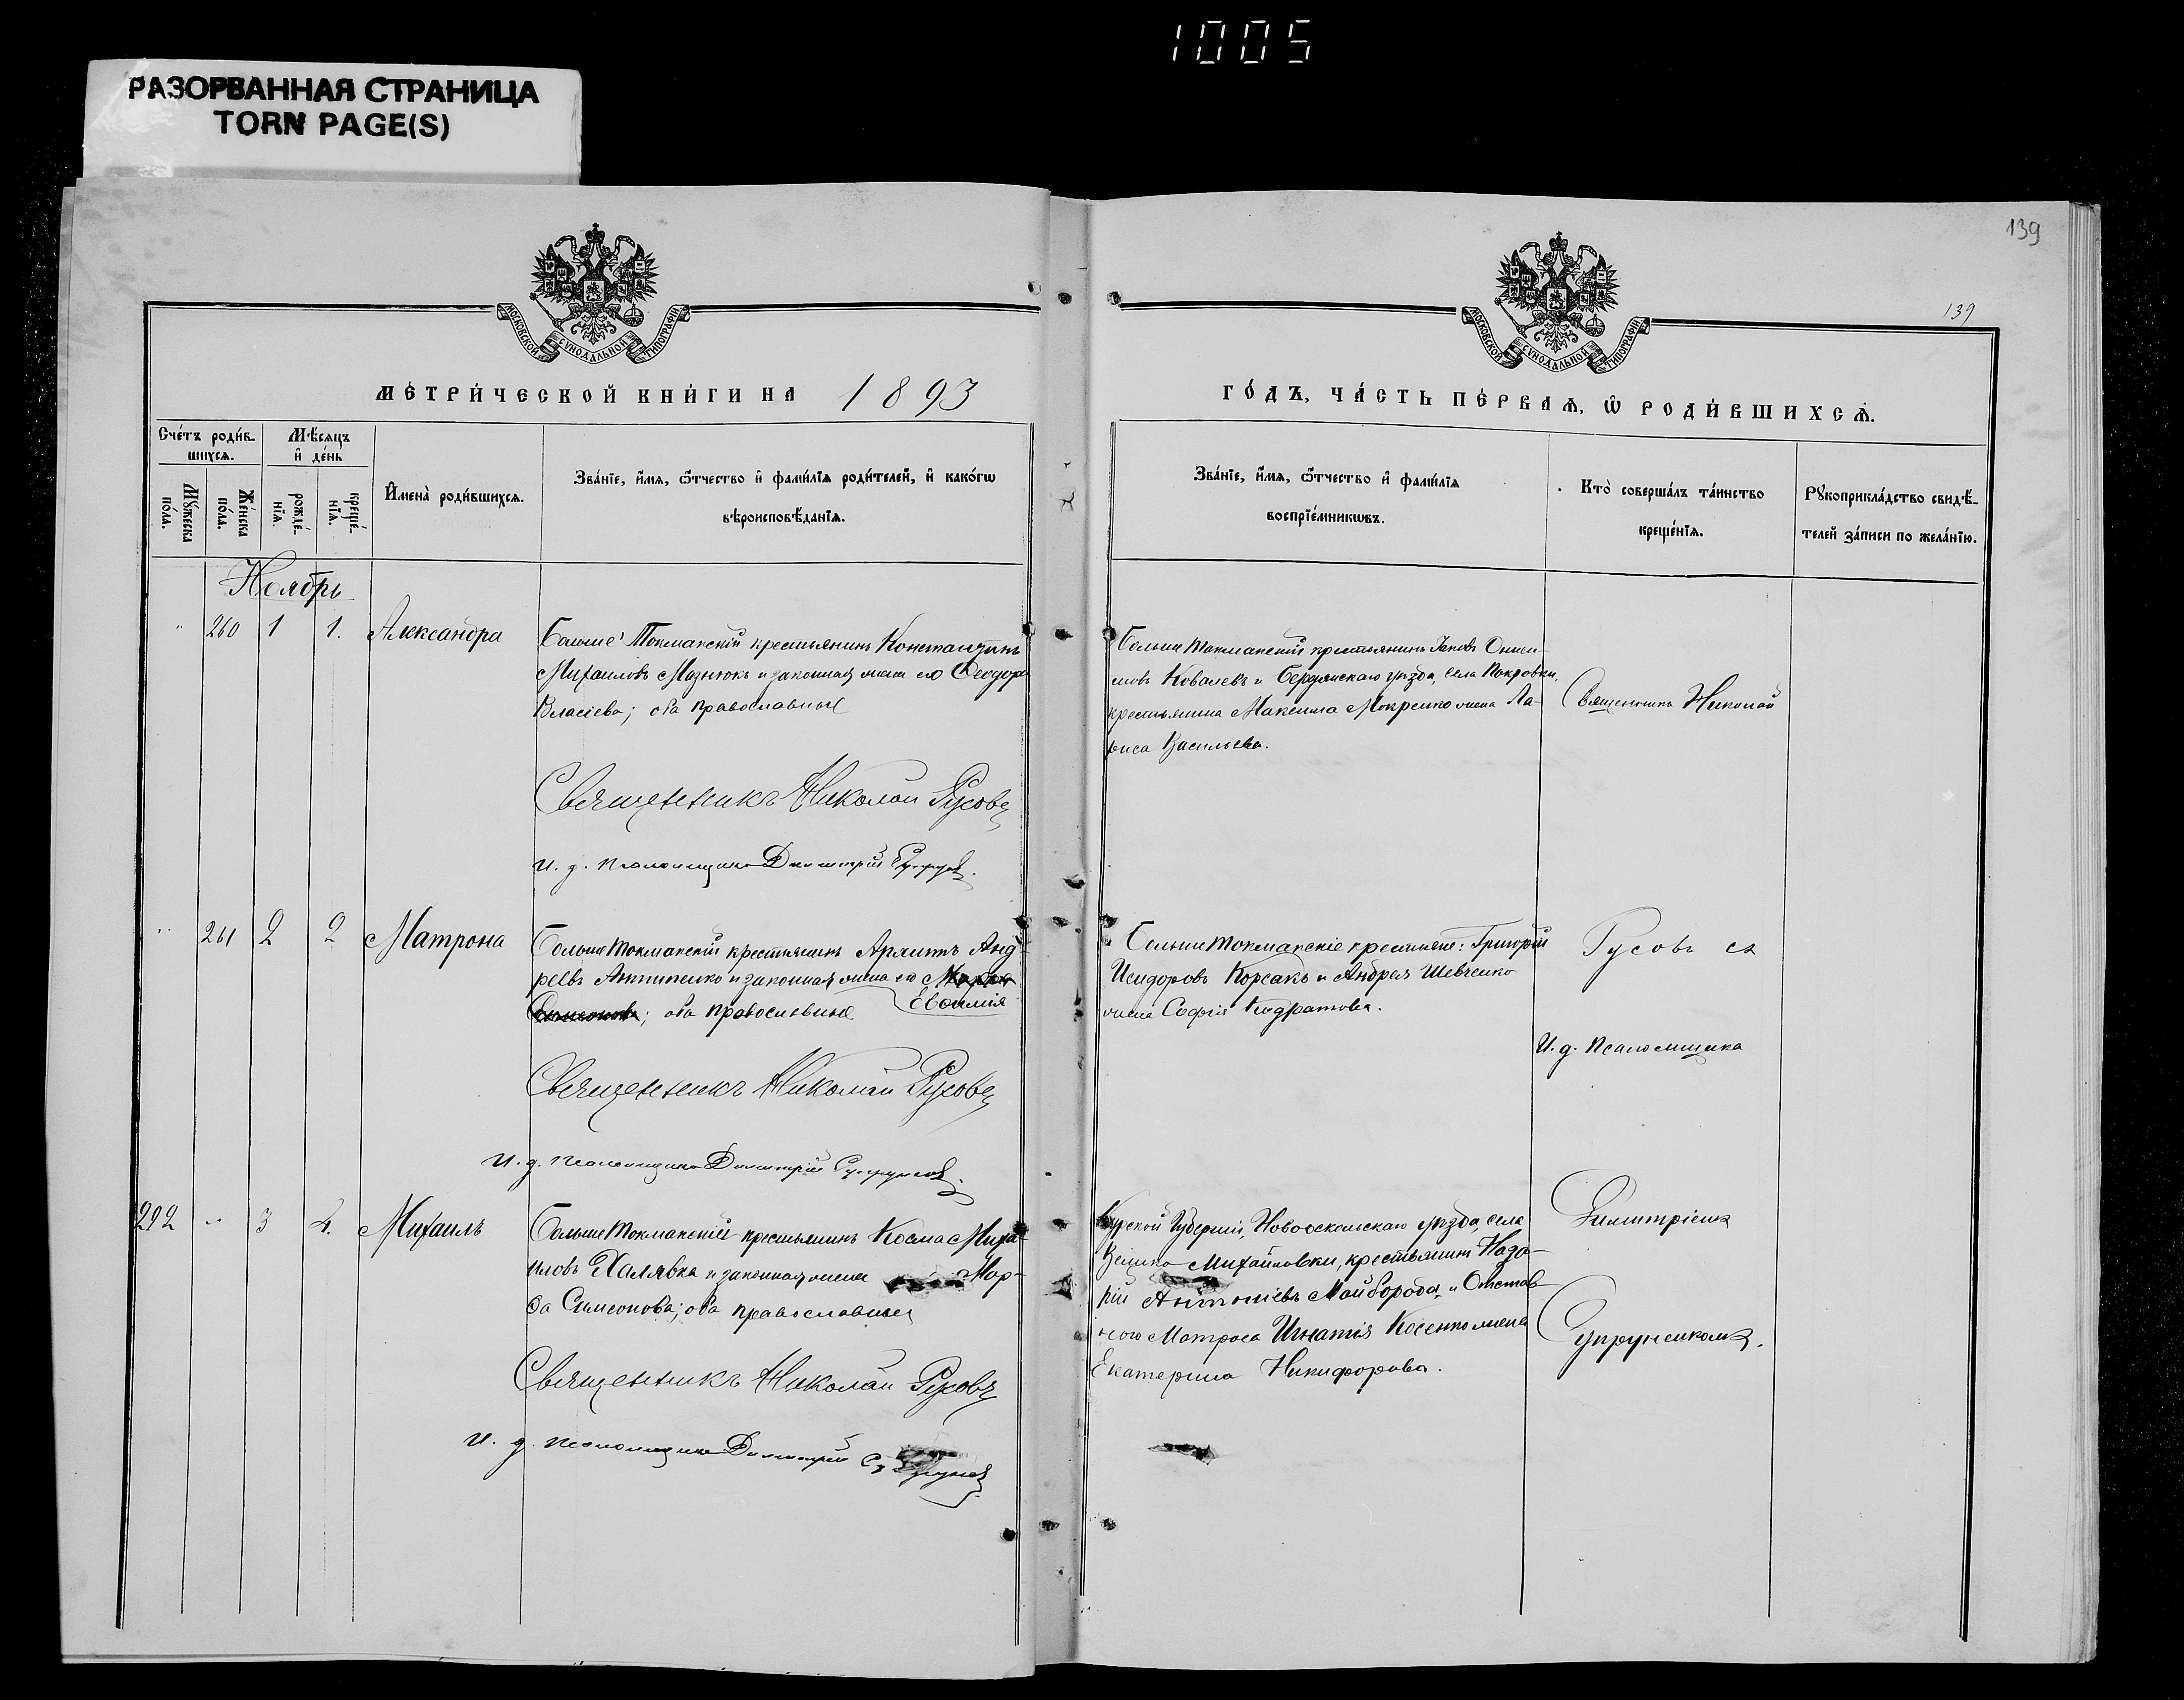 1005
РАЗОРВАННАЯ СТРАНИЦА
TORN PAGE(S)
139
139
МОСКОВСКОЙ СѴНОДАЛЬНОЙ ТИПОГРАФІИ
МОСКОВСКОЙ СѴНОДАЛЬНОЙ ТИПОГРАФІИ
МЕ́ТРИ́ЧЕСКОЙ КНИ́ГИ НА 1893
ГО́ДЪ, ЧА́СТЬ ПЕ́РВАѦ, Ѿ РОДИ́ВШИХСѦ.
Сче́тъ роди́в-
шихсѧ.
Мѣ́сяцъ
и де́нь
Мꙋ́жеска
по́ла.
Же́нска
по́ла.
рожде́-
нїѧ.
креще́-
нїѧ.
И҆мена̀ роди́вшихсѧ.
Зва́нїе, и҆́мѧ, ѻ҆́тчество и҆ фами́лїѧ роди́телей, и҆ како́гѡ
вѣроисповѣ́данїѧ.
Зва́нїе, и҆́мѧ, ѻ҆́тчество и҆ фами́лїѧ
воспрїе́мникѡвъ.
Кто̀ соверша́лъ та́инство
креще́нїѧ.
Рꙋкоприкла́дство свидѣ́-
телей за́писи по жела́нїю.
Ноябрь
" 260 1 1. Александра
Больше Токмакскій крестьянинъ Константинъ
Михаиловъ Мазнюкъ и законная жена его Ѳеодора
Власіева; оба православные
Священникъ Николай Русовъ
И. д. псаломщика Димитрій
Больше Токмакскій крестьянинъ Іаковъ Ониси-
мовъ Ковалевъ и Бердянскаго уѣзда, села Покровки,
крестьянина Максима Мокренко жена Ла-
риса Васильева.
Священникъ Николай
" 261 2 2 Матрона
Больше Токмакскій крестьянинъ Архипъ Анд-
реевъ Антипенко и законная жена его
Евѳимія
; оба православные
Священникъ Николай Русовъ
И. д. псаломщика Димитрій Супруненко
Больше Токмакскіе крестьяне: Григорій
Исидоровъ Корсакъ и Андрея Шевченко
жена Софія Кодратова.
Русовъ съ
И. д. Псаломщика
292 " 3 4. Михаилъ
Больше Токмакскій крестьянинъ Косма Миха-
иловъ Халявка и законная жена Мар-
ѳа Симеонова; оба православные
Священникъ Николай Русовъ
И. д. псаломщика Димитрій
Курской Губерніи, Новооскольскаго уѣзда, села
Велико Михайловки, крестьянинъ
Антоніевъ Майборода и Отстав-
ного Матроса Игнатія Косенко жена
Екатерина Никифорова.
Димитріемъ
Супруненкомъ.